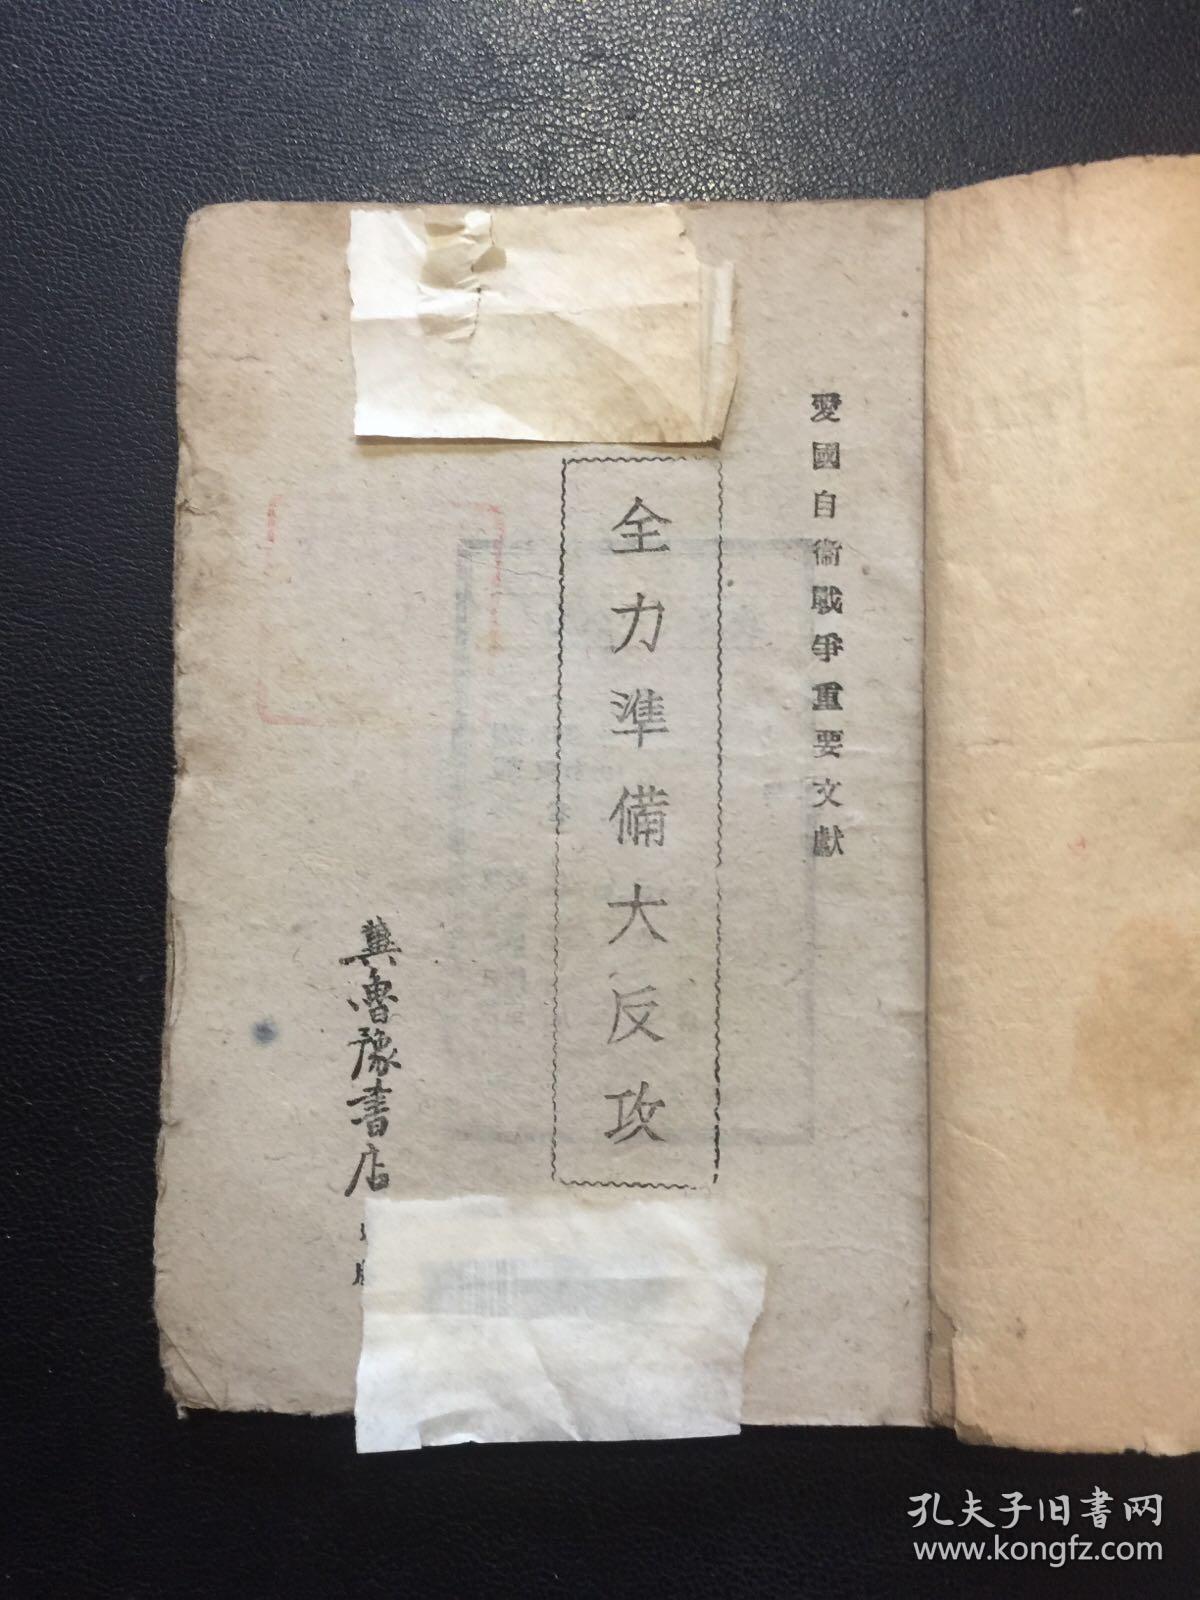 愛國自衞戰爭重要文獻
全力準備大反攻
冀魯豫書店
孔夫子旧书网
www.kongfz.com